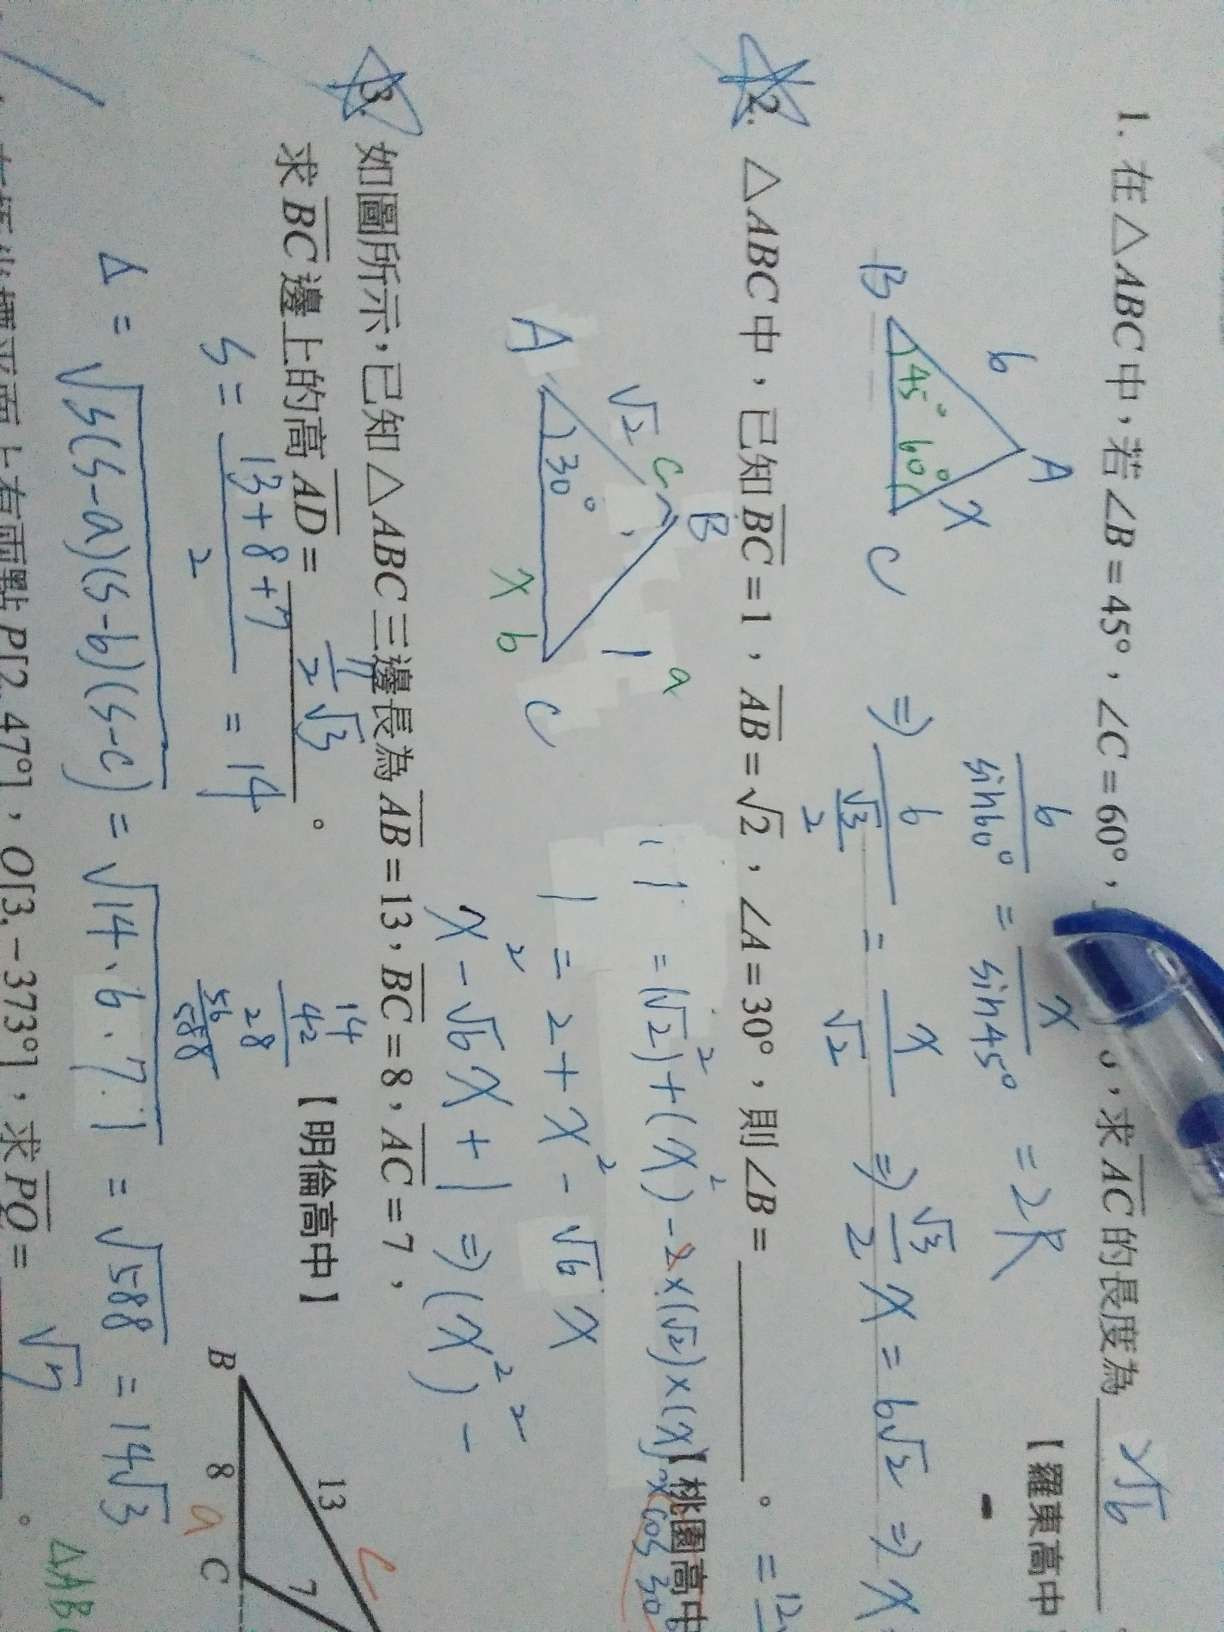 1. 在△ABC中,若∠B=45°,∠C=60°,
,求AC的長度為 2√6
【羅東高中
B 45° 60° C A 6 x
6/sin60° = x/sin45° = 2R
⇒ 6/(√3/2) = x/√2 ⇒ √3/2 x = 6√2 ⇒ x
= 12
2. △ABC中,已知BC=1,AB=√2,∠A=30°,則∠B= 。
【桃園高中
A √2 c B 30° 1 a x b C
1 = (√2)²+(x)²-2×(√2)×(x)×cos30
1 = 2+x²-√6x
x²-√6x+1 ⇒ (x²)²-
3. 如圖所示,已知△ABC三邊長為AB=13,BC=8,AC=7,
求BC邊上的高AD= 7/2 √3 。
【明倫高中】
s = (13+8+7)/2 = 14
14
42
28
56
588
Δ = √s(s-a)(s-b)(s-c) = √14·6·7·1 = √588 = 14√3
B 13 c 8 a C 7
ΔAB
上有兩點P[2,47°],Q[3,-373°],求PQ= √7 。